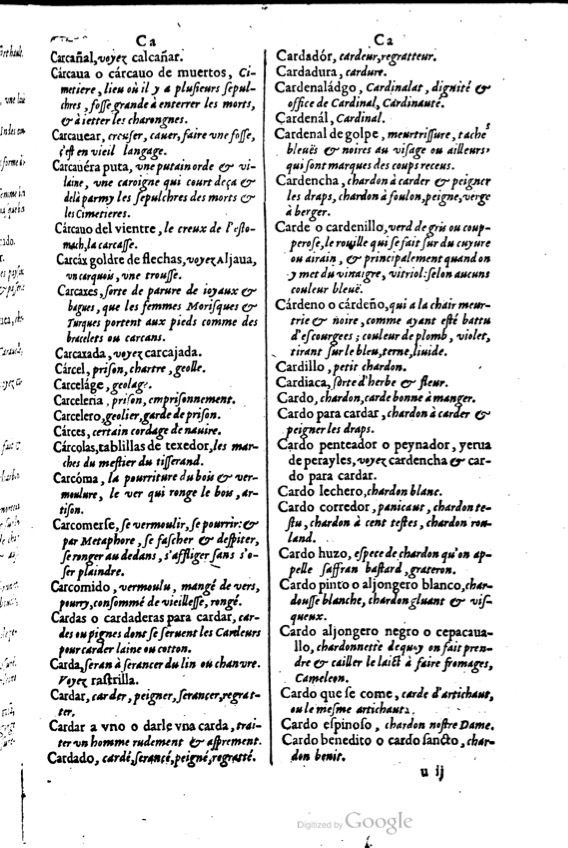 Ca
Carcañal, voyez calcañar.
Cárcaua o cárcauo de muertos, Ci-
metiere, lieu où il y a plusieurs sepul-
chres, fosse grande à enterrer les morts,
& à ietter les charongnes.
Carcauear, creuser, cauer, faire vne fosse,
c'est en vieil langage.
Carcauéra puta, vne putain orde & vi-
laine, vne caroigne qui court deça &
delà parmy les sepulchres des morts &
les Cimetieres.
Cárcauo del vientre, le creux de l'esto-
mach, la carcasse.
Carcáx goldre de flechas, voyez Aljaua,
vn carquois, vne trousse.
Carcaxes, sorte de parure de ioyaux &
bagues, que les femmes Morisques &
Turques portent aux pieds comme des
bracelets ou carcans.
Carcaxada, voyez carcajada.
Cárcel, prison, chartre, geolle.
Carcelàge, geolage.
Carceleria, prison, emprisonnement.
Carcelero, geolier, garde de prison.
Cárces, certain cordage de nauire.
Cárcolas, tablillas de texedor, les mar-
ches du mestier du tisserand.
Carcóma, la pourriture du bois & ver-
moulure, le ver qui ronge le bois, ar-
tison.
Carcomerse, se vermoulir, se pourrir: &
par Metaphore, se fascher & despiter,
se ronger au dedans, s'affliger sans s'o-
ser plaindre.
Carcomido, vermoulu, mangé de vers,
pourry, consommé de vieillesse, rongé.
Cardas o cardaderas para cardar, car-
des ou pignes dont se seruent les Cardeurs
pour carder laine ou cotton.
Carda, seran à serancer du lin ou chanvre.
Voyez rastrilla.
Cardar, carder, peigner, serancer, regrat-
ter.
Cardar a vno o darle vna carda, trai-
ter vn homme rudement & asprement.
Cardado, cardé, serancé, peigné, regratté.
Ca
Cardadór, cardeur, regratteur.
Cardadura, cardure.
Cardenaládgo, Cardinalat, dignité &
office de Cardinal, Cardinauté.
Cardenál, Cardinal.
Cardenal de golpe, meurtrissure, taches
bleuës & noires au visage ou ailleurs,
qui sont marques des coups receus.
Cardencha, chardon à carder & peigner
les draps, chardon à foulon, peigne, verge
à berger.
Carde o cardenillo, verd de gris ou coup-
perose, le rouille qui se fait sur du cuyure
ou airain, & principalement quand on
y met du vinaigre, vitriol: selon aucuns
couleur bleuë.
Cárdeno o cárdeño, qui a la chair meur-
trie & noire, comme ayant esté battu
d'escourgees; couleur de plomb, violet,
tirant sur le bleu, terne, liuide.
Cardillo, petit chardon.
Cardiaca, sorte d'herbe & fleur.
Cardo, chardon, carde bonne à manger.
Cardo para cardar, chardon à carder &
peigner les draps.
Cardo penteador o peynador, yerua
de perayles, voyez cardencha & car-
do para cardar.
Cardo lechero, chardon blanc.
Cardo corredor, panicaut, chardon te-
stu, chardon à cent testes, chardon rou-
land.
Cardo huzo, espece de chardon qu'on ap-
pelle saffran bastard, grateron.
Cardo pinto o aljongero blanco, char-
dousse blanche, chardon gluant & vis-
queux.
Cardo aljongero negro o cepacaua-
llo, chardonnette dequoy on fait pren-
dre & cailler le laict à faire fromages,
Cameleon.
Cardo que se come, carde d'artichaut,
ou le mesme artichaut.
Cardo espinoso, chardon nostre Dame.
Cardo benedito o cardo sancto, char-
don benit.
u ij
Digitized by Google